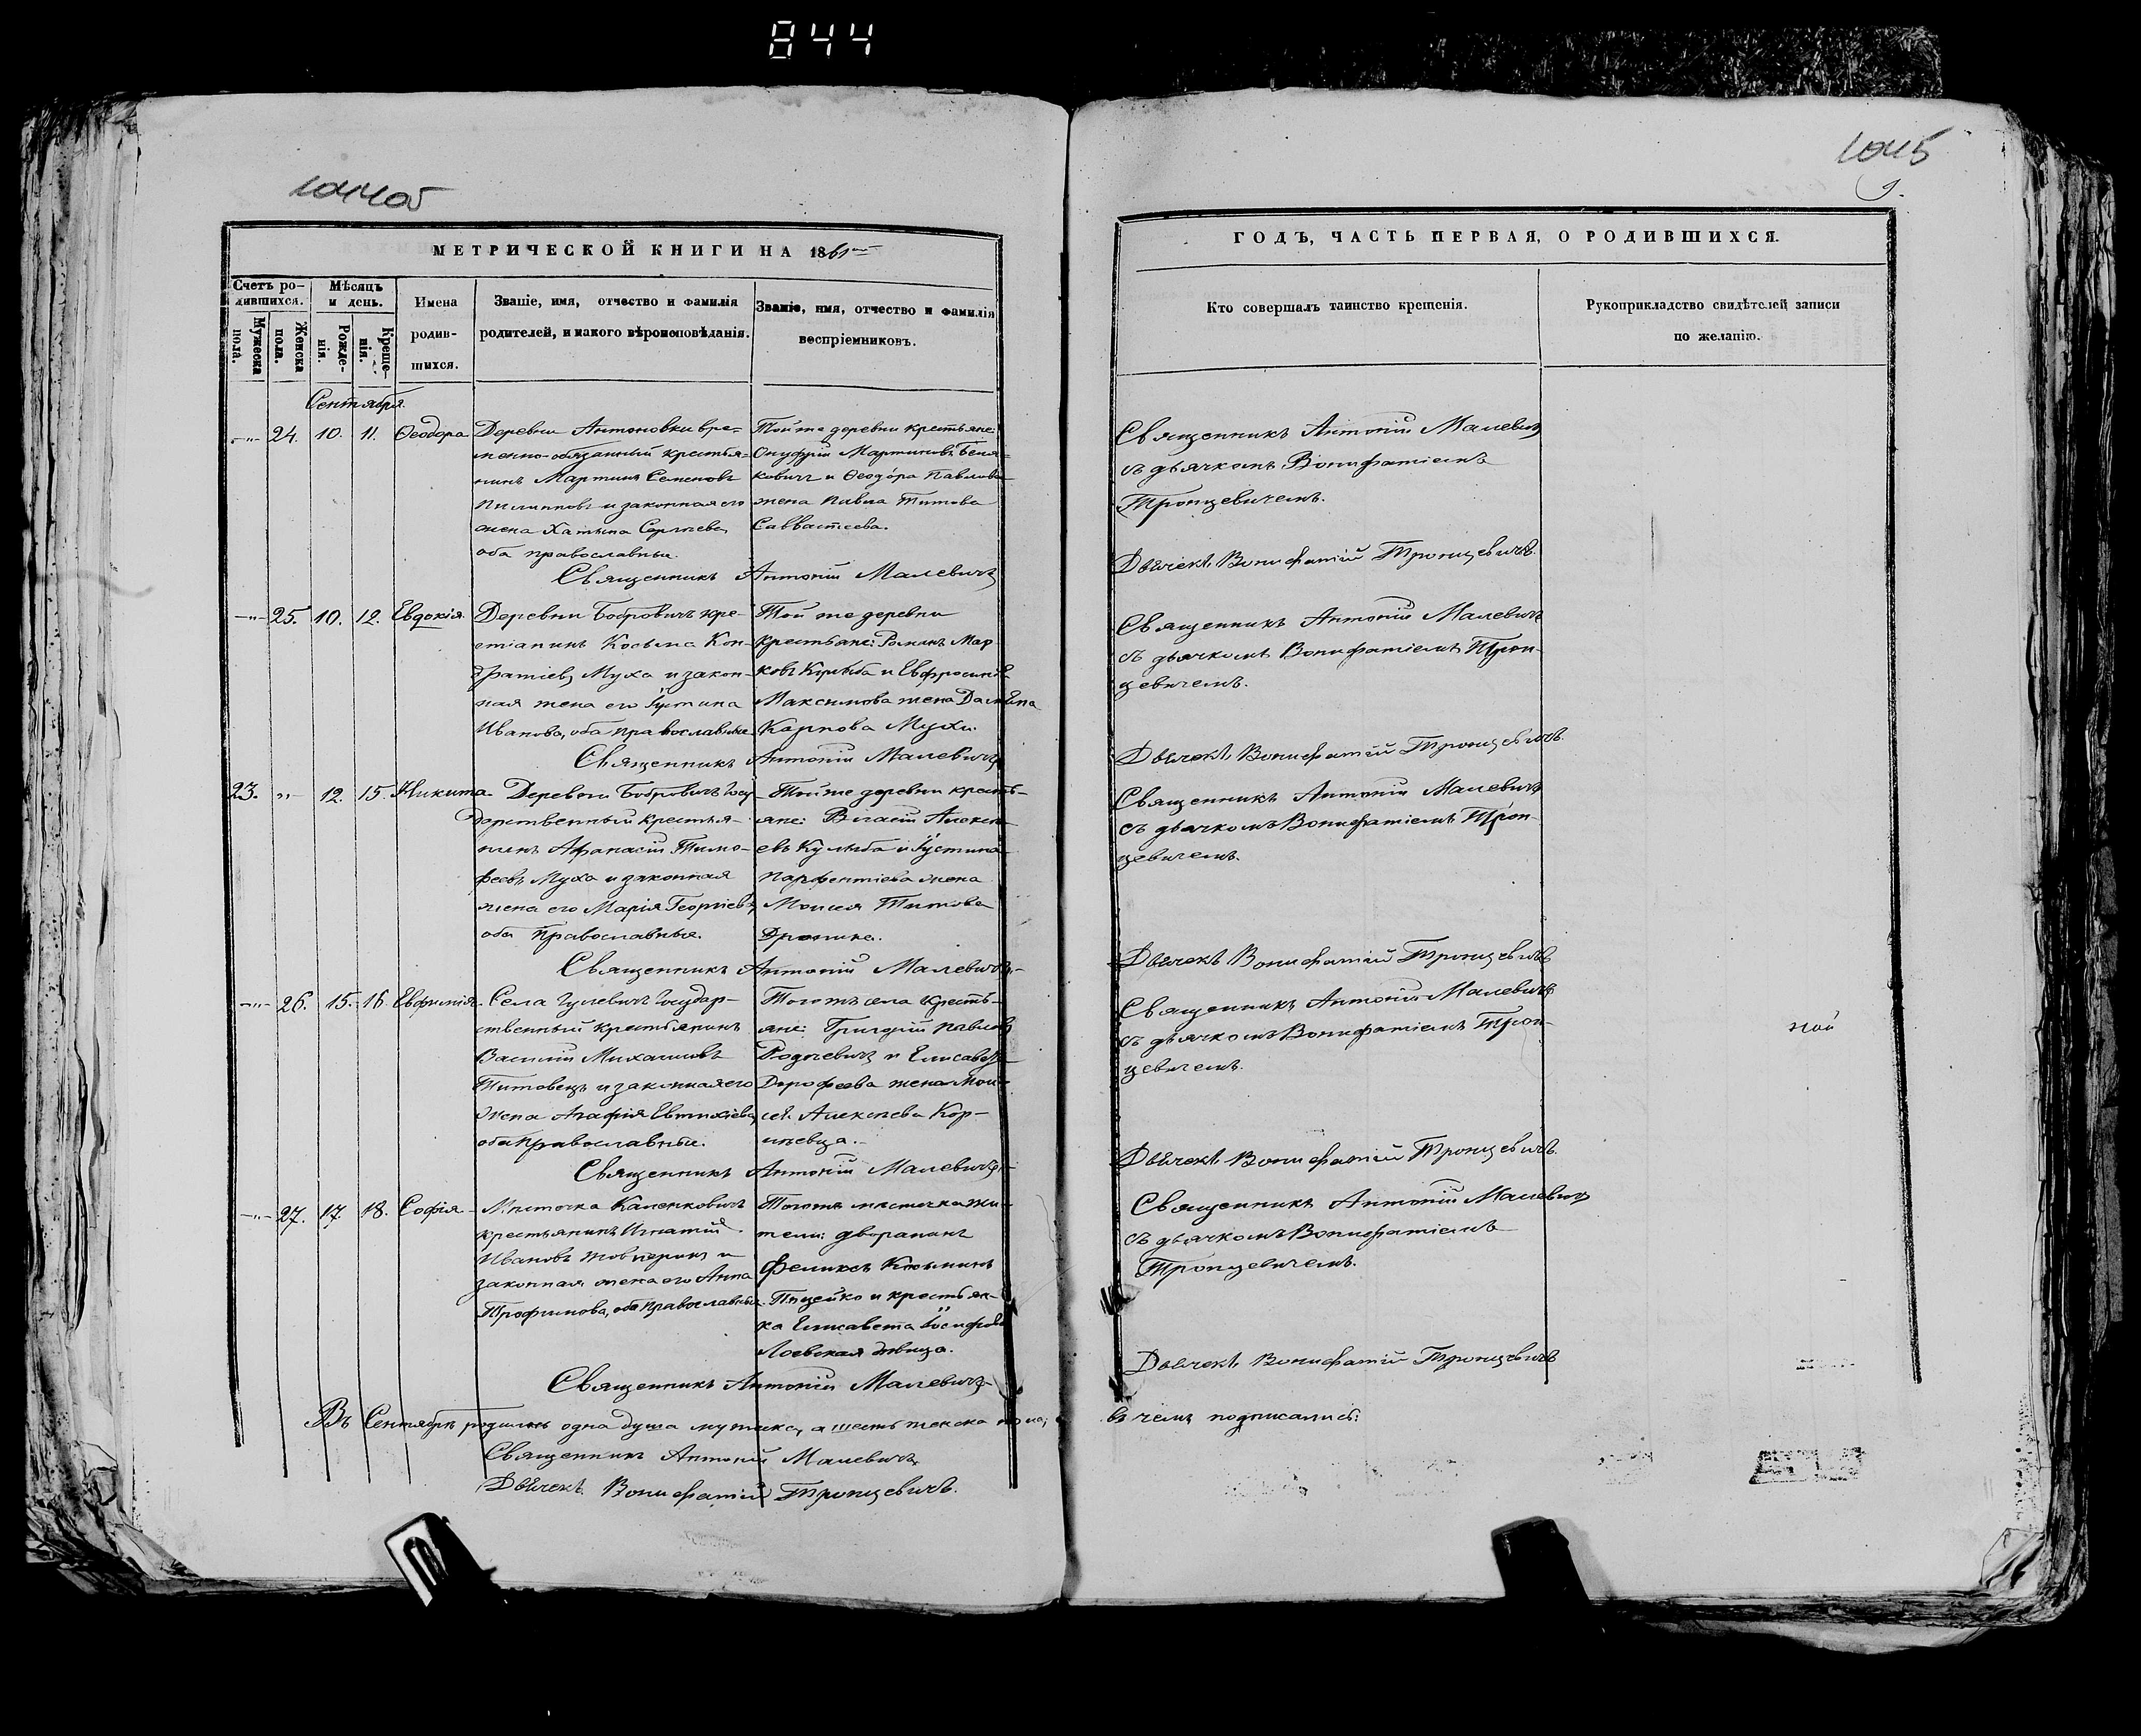 844
1045
9.
МЕТРИЧЕСКОЙ КНИГИ НА 1861
ГОДЪ, ЧАСТЬ ПЕРВАЯ, О РОДИВШИХСЯ.
Счетъ ро-
дившихся.
Мужеска
пола.
Женска
пола.
Мѣсяцъ
и день.
Рожде-
нія.
Креще-
нія.
Имена
родив-
шихся.
Званіе, имя, отчество и фамилія
родителей, и какого вѣроисповѣданія.
Званіе, имя, отчество и фамилія
воспріемниковъ.
Кто совершалъ таинство крещенія.
Рукоприкладство свидѣтелей записи
по желанію.
Сентября.
24. 10. 11. Ѳеодора
Деревни Антоновки вре-
менно-обязанный крестья-
нинъ Мартинъ Семеновъ
и законная его
жена Сергѣева,
оба православны.
Той же деревни крестьяне:
Онуфрій Мартиновъ
и Ѳеодора Павлова
жена Павла Титова
Савватеева.
Священникъ Антоній Малевичъ
Священникъ Антоній Малевичъ
съ дьячкомъ Вонифатіемъ
Тронцевичемъ.
Дьячекъ Вонифатій Тронцевичъ.
25. 10. 12. Евдокія
Деревни Бобровичъ кре-
стіанинъ Косьма Кон-
дратіевъ Муха и закон-
ная жена его Іустина
Иванова, оба православные
Той же деревни
крестьяне: Романъ Мар
ковъ Кулыба и Евфросинія
Максимова жена
Карпова Мухи.
Священникъ Антоній Малевичъ
Священникъ Антоній Малевичъ
съ дьячкомъ Вонифатіемъ Трон-
цевичемъ.
Дьячекъ Вонифатій Тронцевичъ.
23. 12. 15. Никита
Деревни Бобровичъ Госу-
дарственный крестья-
нинъ Афанасій Тимо-
феевъ Муха и законная
жена его Марія Георгіева,
оба православные.
Той же деревни кресть-
яне: Власій Алексе-
евъ Кулыба и Іустина
Парфентіева жена
Моисея Титова
Дроника.
Священникъ Антоній Малевичъ
Священникъ Антоній Малевичъ
съ дьячкомъ Вонифатіемъ Трон-
цевичемъ.
Дьячекъ Вонифатій Тронцевичъ
26. 15. 16. Евфимія
Села Гулевичъ Государ-
ственный крестьянинъ
Василій Михаиловъ
Титовецъ и законная его
жена Агафія Евтихіева,
оба православные.
Тогожъ села кресть-
яне: Григорій Павловъ
Родчевичъ и Елисавета
Дорофеева жена Мои-
сея Алексѣева Кор-
Священникъ Антоній Малевичъ
Священникъ Антоній Малевичъ
съ дьячкомъ Вонифатіемъ Трон-
цевичемъ.
Дьячекъ Вонифатій Тронцевичъ.
27. 17. 18. Софія
Мѣстечка Каленковичъ
крестьянинъ Игнатій
Ивановъ и
законная жена его Анна
Трофимова, оба православные.
Тогожъ мѣстечка жи-
тели: дворянинъ
Феликсъ
и крестьян-
ка Елисавета Іосифова
Лоевская дѣвица.
Священникъ Антоній Малевичъ
Священникъ Антоній Малевичъ
съ дьячкомъ Вонифатіемъ
Тронцевичемъ.
Дьячекъ Вонифатій Тронцевичъ
Въ Сентябрѣ родилось одна душа мужеска, а шесть женска пола, въ чемъ подписались:
Священникъ Антоній Малевичъ
Дьячекъ Вонифатій Тронцевичъ.